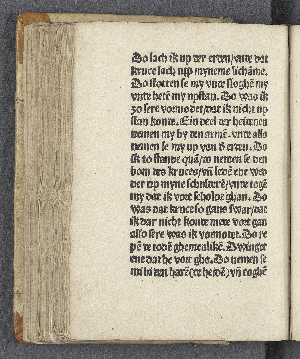 Do lach ik up der erden/vnde dat
kruce lach vp myneme lichāme.
Do stotten se my vnde sloghē my
vnde hetē my vpstan. Do was ik
so sere vormodet/dat ik nicht up
stan konde. Ein deel der heidenen
nemen my by den armē. vnde also
nemen se my up von d erden. Do
ik to stande quā/do nemen se den
bom des kruces/vn̄ leidē ene wed
der op myne schuldere/vnde togē
my dat ik vort scholde ghan. Do
was dat kruce so gans swar/dat
ik dar nicht konde mede vort gan
also sere was ik vormodet. Do re
pē de iodē ghemeliké. Dwinget
ene dat he vort ghe. Do nemen se
mi bi den harē(de heidē) vn̄ toghē